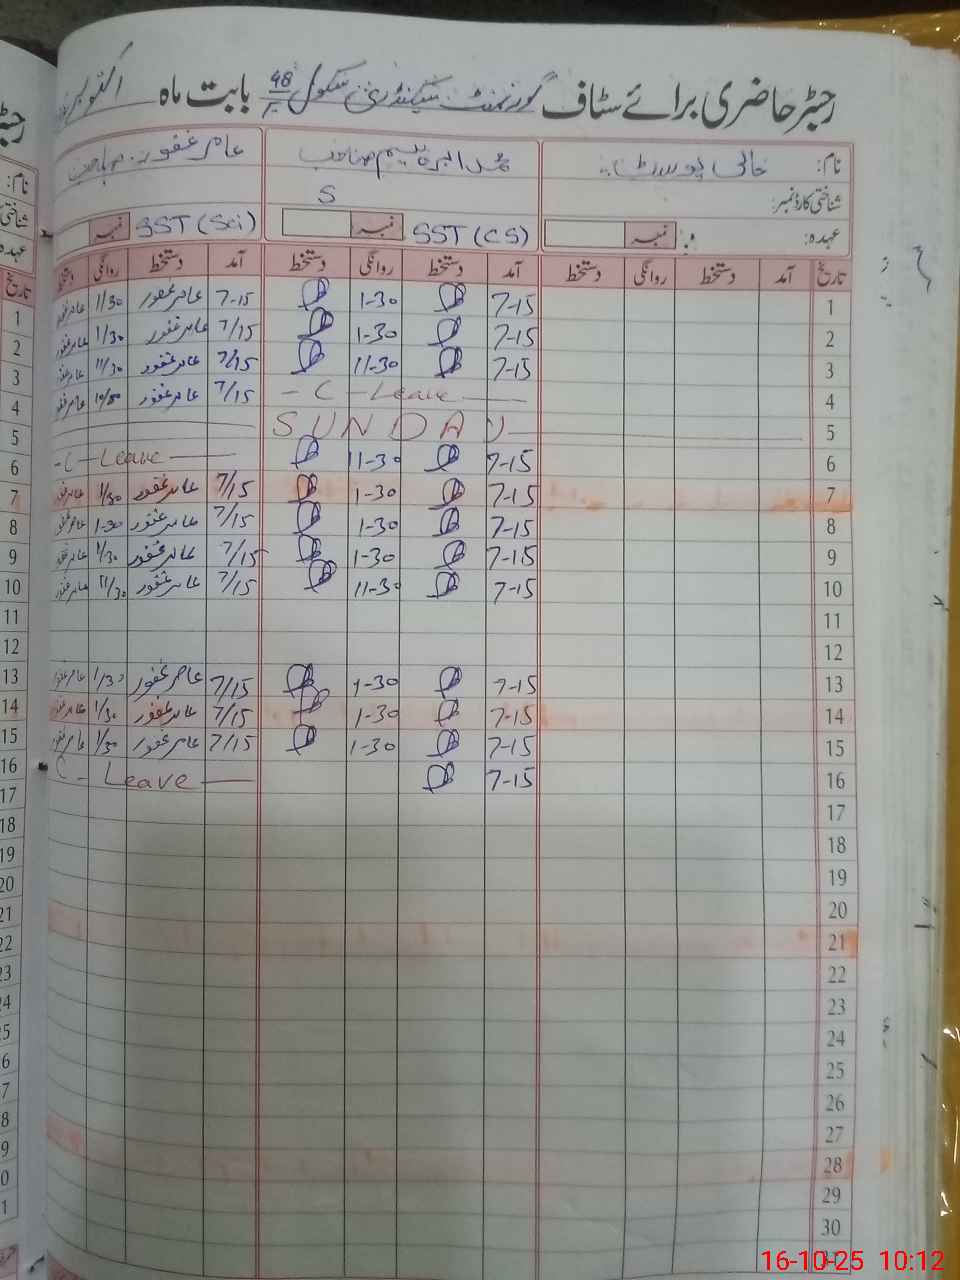 رجسٹر حاضری برائے سٹاف گورنمنٹ سیکنڈری سکول 48 بابت ماہ اکتوبر
نام: خالی پوسٹ محمد ابراہیم صاحب عامر غفور صاحب
شناختی کارڈ نمبر: S
عہدہ: نمبر SST (CS) نمبر SST (Sci) نمبر
تاریخ آمد دستخط روانگی دستخط آمد دستخط روانگی دستخط آمد دستخط روانگی دستخط
1 7-15 1-30 7-15 عامر غفور 1/30 عامر غفور
2 7-15 1-30 7/15 عامر غفور 1/30 عامر غفور
3 7-15 11-30 7/15 عامر غفور 11/30 عامر غفور
4 - C - Leave 7/15 عامر غفور 10/30 عامر غفور
5 SUNDAY
6 7-15 11-30 - C - Leave
7 7-15 1-30 7/15 عامر غفور 1/30 عامر غفور
8 7-15 1-30 7/15 عامر غفور 1-30 عامر غفور
9 7-15 1-30 7/15 عامر غفور 1/30 عامر غفور
10 7-15 11-30 7/15 عامر غفور 11/30 عامر غفور
11
12
13 7-15 1-30 7/15 عامر غفور 1/30 عامر غفور
14 7-15 1-30 7/15 عامر غفور 1/30 عامر غفور
15 7-15 1-30 7/15 عامر غفور 1/30 عامر غفور
16 7-15 C - Leave
17
18
19
20
21
22
23
24
25
26
27
28
29
30
16-10-25 10:12